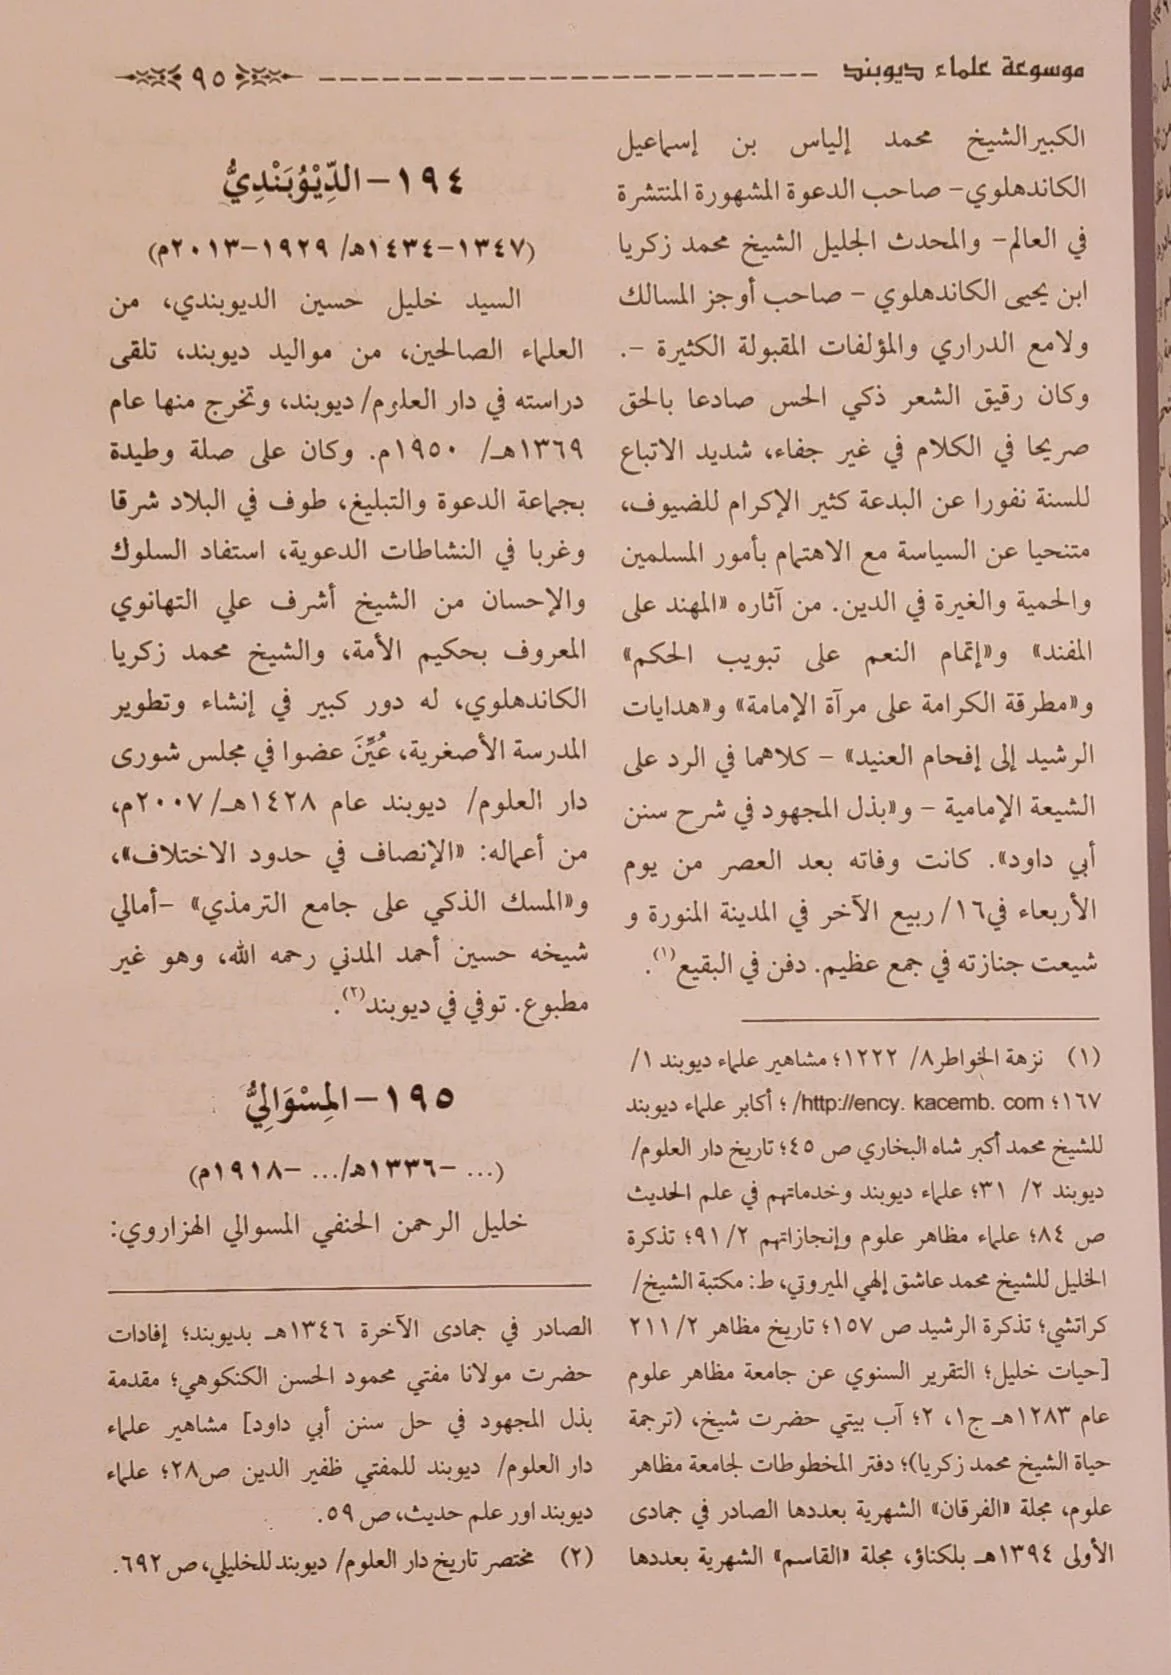 موسوعة علماء ديوبند ٩٥
الكبيرالشيخ محمد إلياس بن إسماعيل
الكاندهلوي- صاحب الدعوة المشهورة المنتشرة
في العالم- والمحدث الجليل الشيخ محمد زكريا
ابن يحيى الكاندهلوي - صاحب أوجز المسالك
ولامع الدراري والمؤلفات المقبولة الكثيرة -.
وكان رقيق الشعر ذكي الحس صادعا بالحق
صريحا في الكلام في غير جفاء، شديد الاتباع
للسنة نفورا عن البدعة كثير الإكرام للضيوف،
متنحيا عن السياسة مع الاهتمام بأمور المسلمين
والحمية والغيرة في الدين. من آثاره «المهند على
المفند» و«إتمام النعم على تبويب الحكم»
و«مطرقة الكرامة على مرآة الإمامة» و«هدايات
الرشيد إلى إفحام العنيد» - كلاهما في الرد على
الشيعة الإمامية - و«بذل المجهود في شرح سنن
أبي داود». كانت وفاته بعد العصر من يوم
الأربعاء في١٦/ ربيع الآخر في المدينة المنورة و
شيعت جنازته في جمع عظيم. دفن في البقيع(١).
(١) نزهة الخواطر٨/ ١٢٢٢؛ مشاهير علماء ديوبند ١/
١٦٧؛ http://ency. kacemb. com/ ؛ أكابر علماء ديوبند
للشيخ محمد أكبر شاه البخاري ص ٤٥؛ تاريخ دار العلوم/
ديوبند ٢/ ٣١؛ علماء ديوبند وخدماتهم في علم الحديث
ص ٨٤؛ علماء مظاهر علوم وإنجازاتهم ٩١/٢؛ تذكرة
الخليل للشيخ محمد عاشق إلهي الميروتي، ط: مكتبة الشيخ/
كراتشي؛ تذكرة الرشيد ص ١٥٧؛ تاريخ مظاهر ٢/ ٢١١
[حيات خليل؛ التقرير السنوي عن جامعة مظاهر علوم
عام ١٢٨٣هـ ج١، ٢؛ آب بيتي حضرت شيخ، (ترجمة
حياة الشيخ محمد زكريا)؛ دفتر المخطوطات لجامعة مظاهر
علوم، مجلة «الفرقان» الشهرية بعددها الصادر في جمادى
الأولى ١٣٩٤هـ بلكناؤ، مجلة «القاسم» الشهرية بعددها
١٩٤- الدِّيْوُبَنْدِيُّ
(١٣٤٧-١٤٣٤هـ/ ١٩٢٩-٢٠١٣م)
السيد خليل حسين الديوبندي، من
العلماء الصالحين، من مواليد ديوبند، تلقى
دراسته في دار العلوم/ ديوبند، وتخرج منها عام
١٣٦٩هـ/ ١٩٥٠م. وكان على صلة وطيدة
بجماعة الدعوة والتبليغ، طوف في البلاد شرقا
وغربا في النشاطات الدعوية، استفاد السلوك
والإحسان من الشيخ أشرف علي التهانوي
المعروف بحكيم الأمة، والشيخ محمد زكريا
الكاندهلوي، له دور كبير في إنشاء وتطوير
المدرسة الأصغرية، عُيِّنَ عضوا في مجلس شورى
دار العلوم/ ديوبند عام ١٤٢٨هـ/ ٢٠٠٧م،
من أعماله: «الإنصاف في حدود الاختلاف»،
و«المسك الذكي على جامع الترمذي» -أمالي
شيخه حسين أحمد المدني رحمه الله، وهو غير
مطبوع. توفي في ديوبند(٢).
١٩٥- المِسْوَالِيُّ
(... -١٣٣٦هـ/... -١٩١٨م)
خليل الرحمن الحنفي المسوالي الهزاروي:
الصادر في جمادى الآخرة ١٣٤٦هـ بديوبند؛ إفادات
حضرت مولانا مفتي محمود الحسن الكنكوهي؛ مقدمة
بذل المجهود في حل سنن أبي داود] مشاهير علماء
دار العلوم/ ديوبند للمفتي ظفير الدين ص٢٨؛ علماء
ديوبند اور علم حديث، ص ٥٩.
(٢) مختصر تاريخ دار العلوم/ ديوبند للخليلي، ص ٦٩٢.